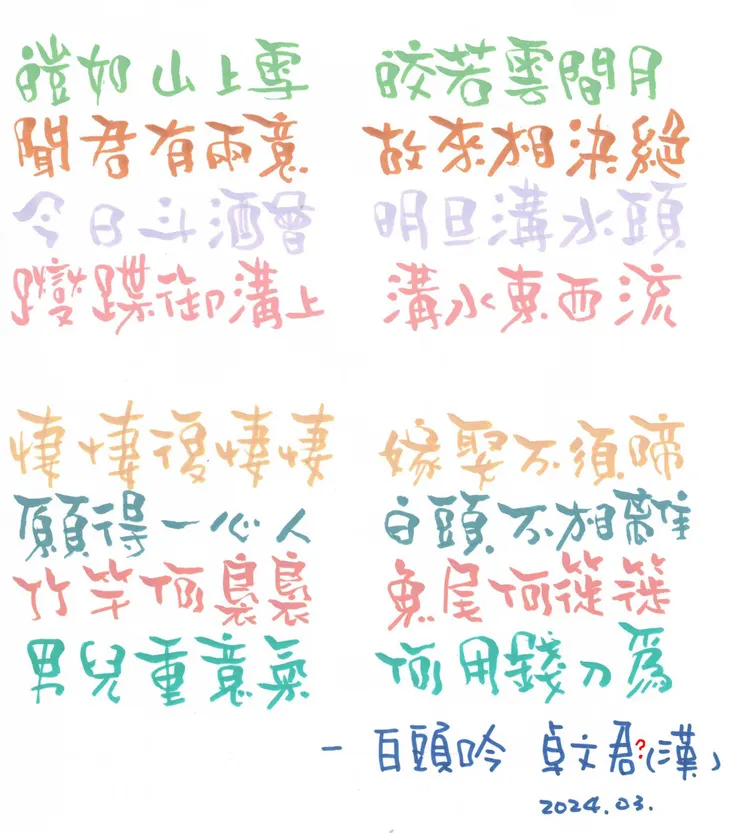 皚如山上雪 皎若雲間月
聞君有兩意 故來相決絕
今日斗酒會 明旦溝水頭
躞蹀御溝上 溝水東西流
悽悽復悽悽 嫁娶不須啼
願得一心人 白頭不相離
竹竿何裊裊 魚尾何簁簁
男兒重意氣 何用錢刀爲
— 白頭吟 卓文君?(漢)
2024.03.